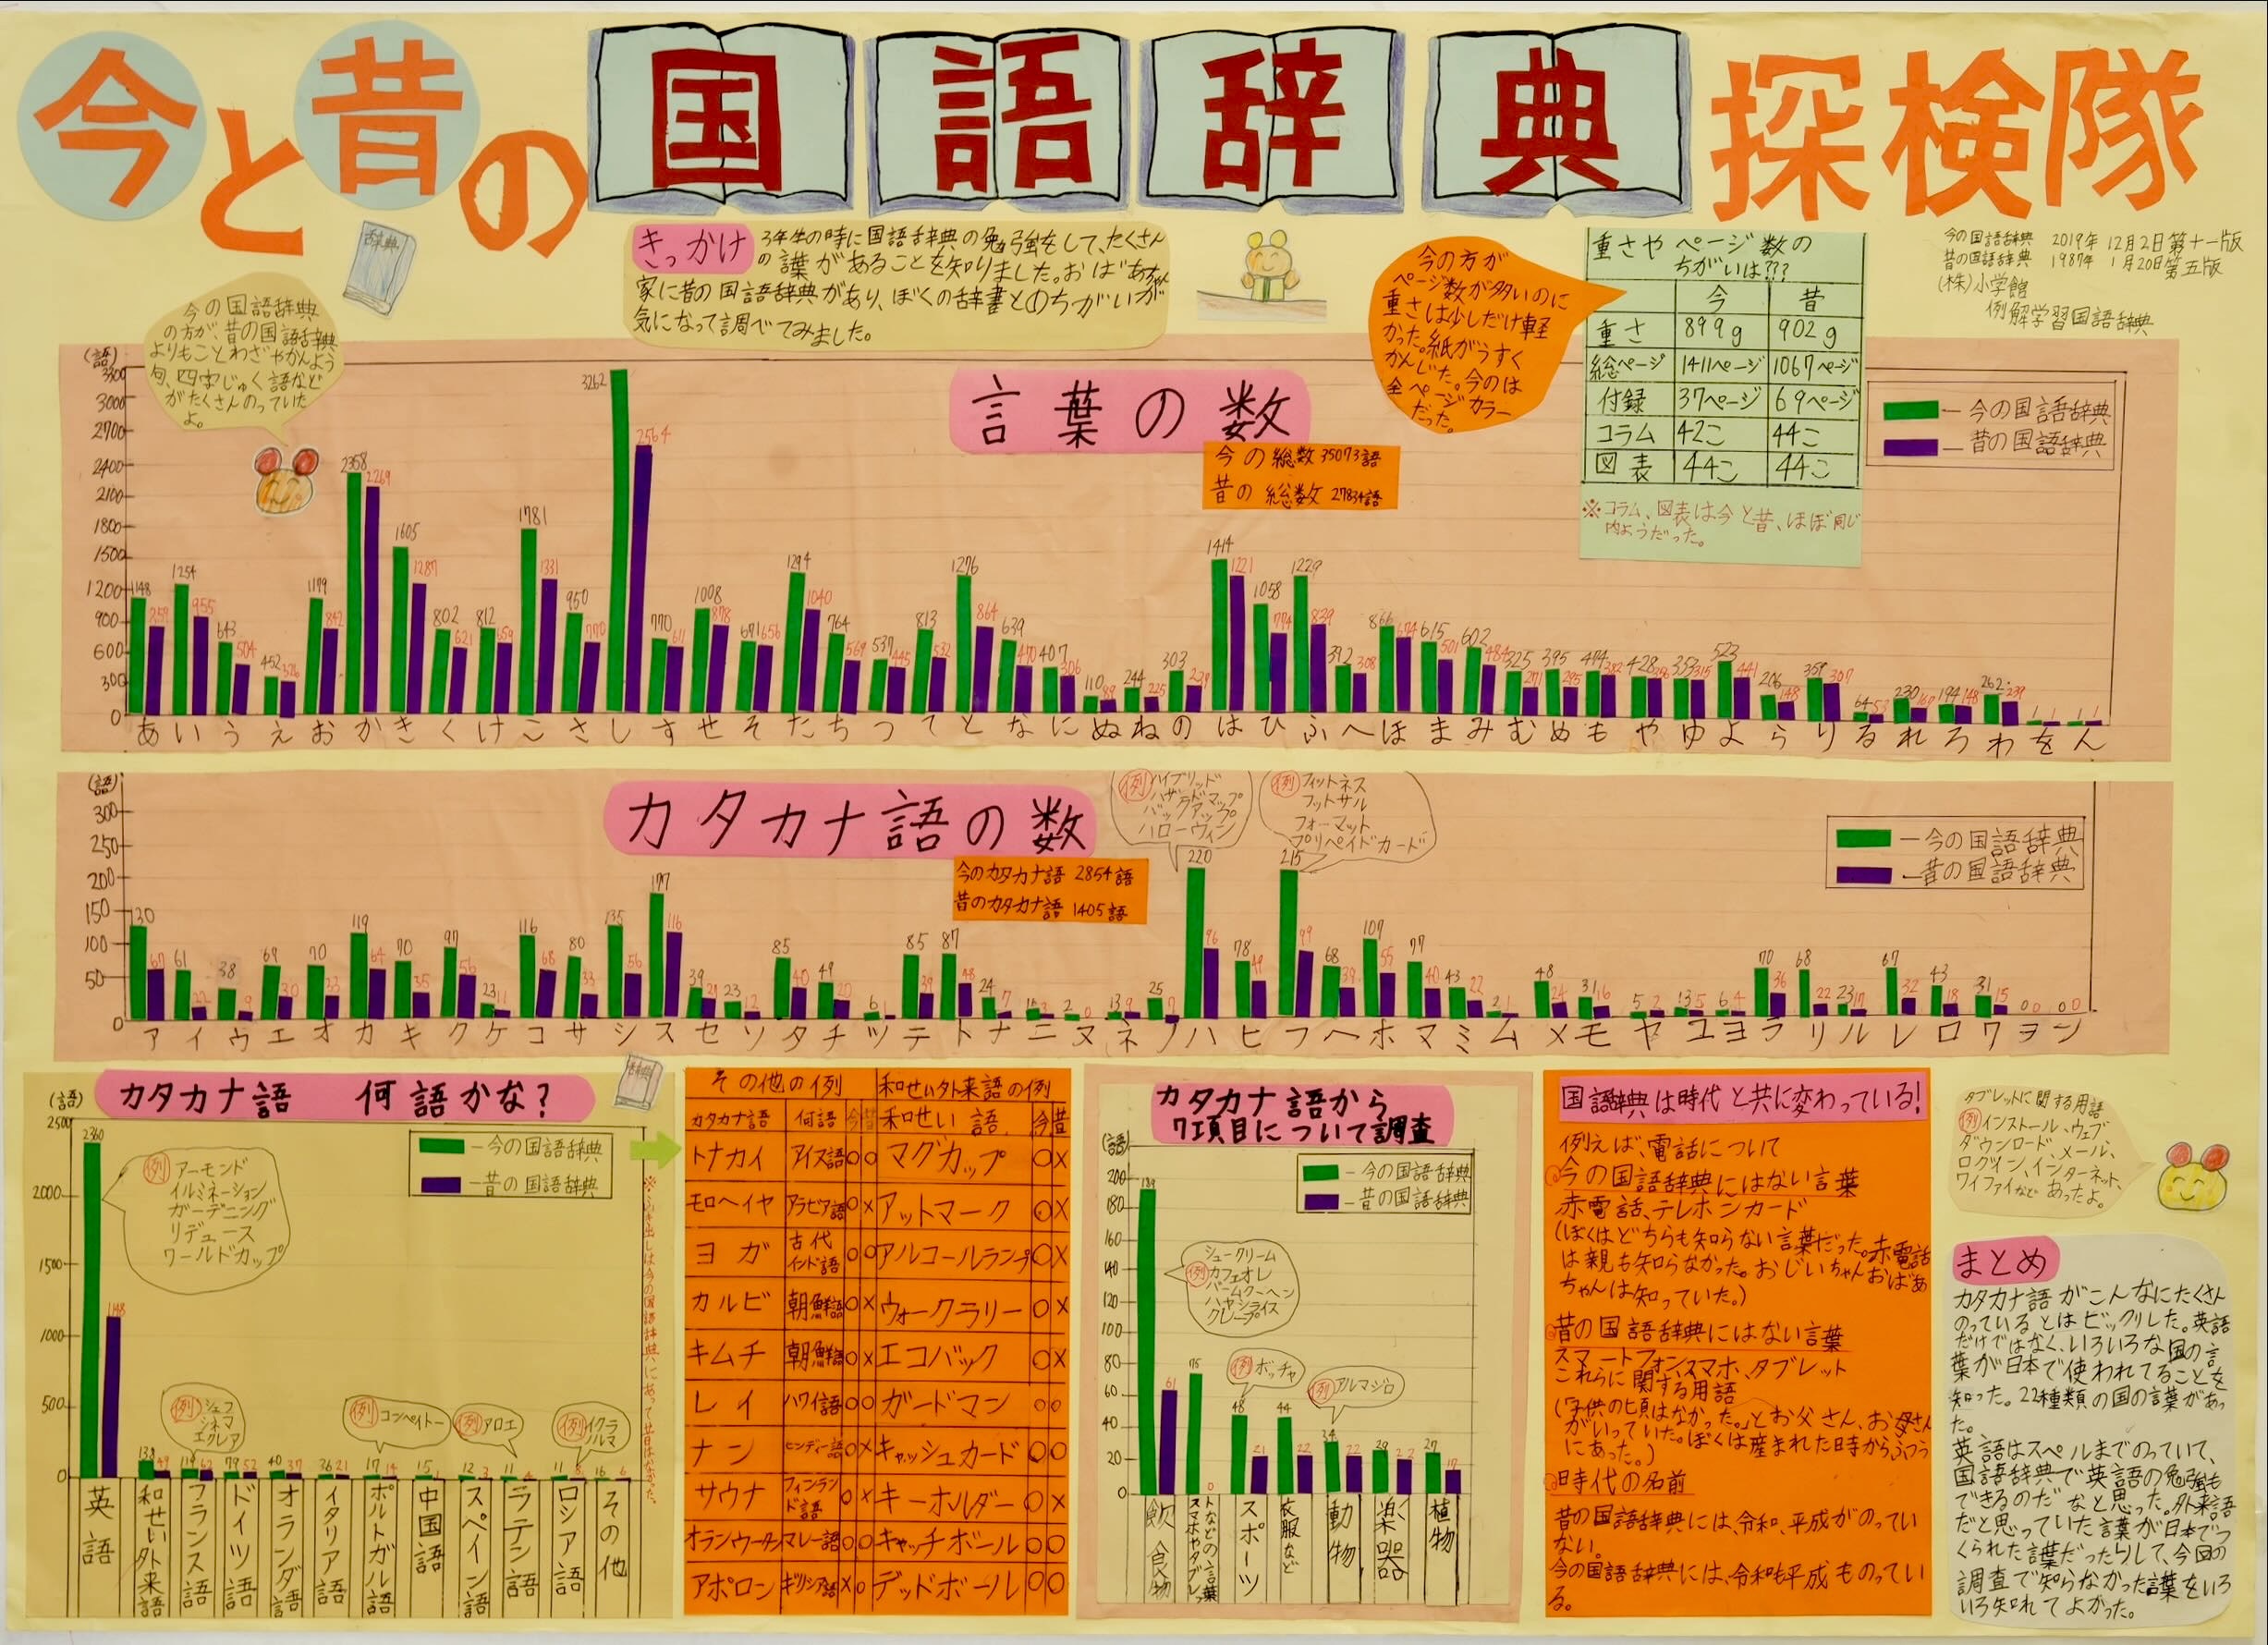 今と昔の国語辞典探検隊
辞典
きっかけ 3年生の時に国語辞典の勉強をして、たくさん
の言葉があることを知りました。おばあちゃん
家に昔の国語辞典があり、ぼくの辞書とのちがいが
気になって調べてみました。
今の方が
ページ数が多いのに
重さは少しだけ軽
かった。紙がうすく
かんじた。今のは
全ページカラー
だった。
重さやページ数の
ちがいは???
今 昔
重さ 899g 902g
総ページ 1411ページ 1067ページ
付録 37ページ 69ページ
コラム 42こ 44こ
図表 44こ 44こ
※コラム、図表は今と昔、ほぼ同じ
内ようだった。
今の国語辞典 2019年 12月2日第十一版
昔の国語辞典 1987年 1月20日第五版
(株)小学館
例解学習国語辞典
今の国語辞典
の方が、昔の国語辞典
よりもことわざやかんよう
句、四字じゅく語など
がたくさんのっていた
よ。
言葉の数
今の総数35073語
昔の総数27834語
今の国語辞典
昔の国語辞典
(語)
3300
3000
2700
2400
2100
1800
1500
1200
900
600
300
0
1148 1254 955 643 504 452 1179 842 2358 2269 1605 1287 802 621 812 659 1781 1331 950 770 3262 2564 770 611 1008 878 691 656 1294 1040 764 569 537 445 813 532 1276 864 639 470 407 306 110 89 244 225 303 229 1414 1221 1058 774 1229 839 392 308 866 674 615 501 602 484 325 271 395 295 494 382 428 353 315 523 441 206 148 359 307 64 53 230 169 194 148 262 239 1 1 1 1
あ い う え お か き く け こ さ し す せ そ た ち つ て と な に ぬ ね の は ひ ふ へ ほ ま み む め も や ゆ よ ら り る れ ろ わ を ん
カタカナ語の数
今のカタカナ語 2854語
昔のカタカナ語 1405語
例 ハイブリッド
ハザードマップ
バックアップ
ハローウィン
例 フィットネス
フットサル
フォーマット
プリペイドカード
今の国語辞典
昔の国語辞典
(語)
300
250
200
150
100
50
0
130 67 61 22 38 9 69 30 70 33 119 64 70 35 97 56 23 11 116 68 80 33 135 56 197 116 39 29 23 12 85 40 49 20 6 1 85 39 87 48 24 7 2 0 13 9 25 7 220 96 78 49 215 99 68 39 107 55 77 40 43 22 2 1 48 24 31 16 5 2 13 5 6 4 70 36 68 22 23 17 67 32 43 18 31 15 0 0 0 0
ア イ ウ エ オ カ キ ク ケ コ サ シ ス セ ソ タ チ ツ テ ト ナ ニ ヌ ネ ノ ハ ヒ フ ヘ ホ マ ミ ム メ モ ヤ ユ ヨ ラ リ ル レ ロ ワ ヲ ン
カタカナ語 何語かな?
辞典
今の国語辞典
昔の国語辞典
(語)
2500
2000
1500
1000
500
0
例 アーモンド
イルミネーション
ガーデニング
リデュース
ワールドカップ
例 シェフ
シネマ
エクレア
例 コンペイトー
例 アロエ
例 イクラ
ノルマ
2360 1148 138 49 119 62 79 52 40 37 36 21 17 14 15 1 12 3 11 4 11 8 16 6
英語
和せい外来語
フランス語
ドイツ語
オランダ語
イタリア語
ポルトガル語
中国語
スペイン語
ラテン語
ロシア語
その他
その他の例 和せい外来語の例
カタカナ語 何語 今 昔 和せい語 今 昔
トナカイ アイヌ語 ○ ○ マグカップ ○ ×
モロヘイヤ アラビア語 ○ × アットマーク ○ ×
ヨガ 古代インド語 ○ ○ アルコールランプ ○ ×
カルビ 朝鮮語 ○ × ウォークラリー ○ ×
キムチ 朝鮮語 ○ × エコバック ○ ×
レイ ハワイ語 ○ ○ ガードマン ○ ○
ナン ヒンディー語 ○ × キャッシュカード ○ ○
サウナ フィンランド語 ○ × キーホルダー ○ ×
オランウータン マレー語 ○ ○ キャッチボール ○ ○
アポロン ギリシア語 × ○ デッドボール ○ ○
カタカナ語から
7項目について調査
今の国語辞典
昔の国語辞典
(語)
200
180
160
140
120
100
80
60
40
20
0
シュークリーム
例 カフェオレ
バームクーヘン
ハヤシライス
クレープ
例 ボッチャ
例 アルマジロ
61 75 0 48 21 44 22 34 22 29 22 27
飲食物
スマホやタブレットなどの言葉
スポーツ
衣服など
動物
楽器
植物
国語辞典は時代と共に変わっている!
例えば、電話について
今の国語辞典にはない言葉
赤電話、テレホンカード
(ぼくはどちらも知らない言葉だった。赤電話
は親も知らなかった。おじいちゃんおばあ
ちゃんは知っていた。)
昔の国語辞典にはない言葉
スマートフォン、スマホ、タブレット
これらに関する用語
(「子供の頃はなかった。」とお父さん、お母さん
がいっていた。ぼくは産まれた時からふつう
にあった。)
時代の名前
昔の国語辞典には、令和、平成がのってい
ない。
今の国語辞典には、令和も平成ものってい
る。
タブレットに関する用語
例 インストール、ウェブ
ダウンロード、メール、
ログイン、インターネット、
ワイファイなど あったよ。
まとめ
カタカナ語がこんなにたくさん
のっているとはビックリした。英語
だけではなく、いろいろな国の言
葉が日本で使われてることを
知った。22種類の国の言葉があっ
た。
英語はスペルまでのっていて、
国語辞典で英語の勉強も
できるのだなと思った。外来語
だと思っていた言葉が日本でつ
くられた言葉だったりして、今回の
調査で知らなかった言葉をいろ
いろ知れてよかった。